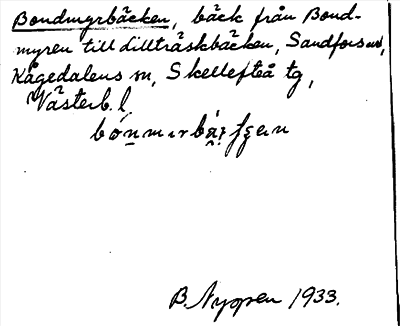 Bondmyrbäcken, bäck från Bond-
myren till Lillträskbäcken, Sandfors
Kågedalens sn, Skellefteå tg,
Västerb. l.
B. Nygren 1933.